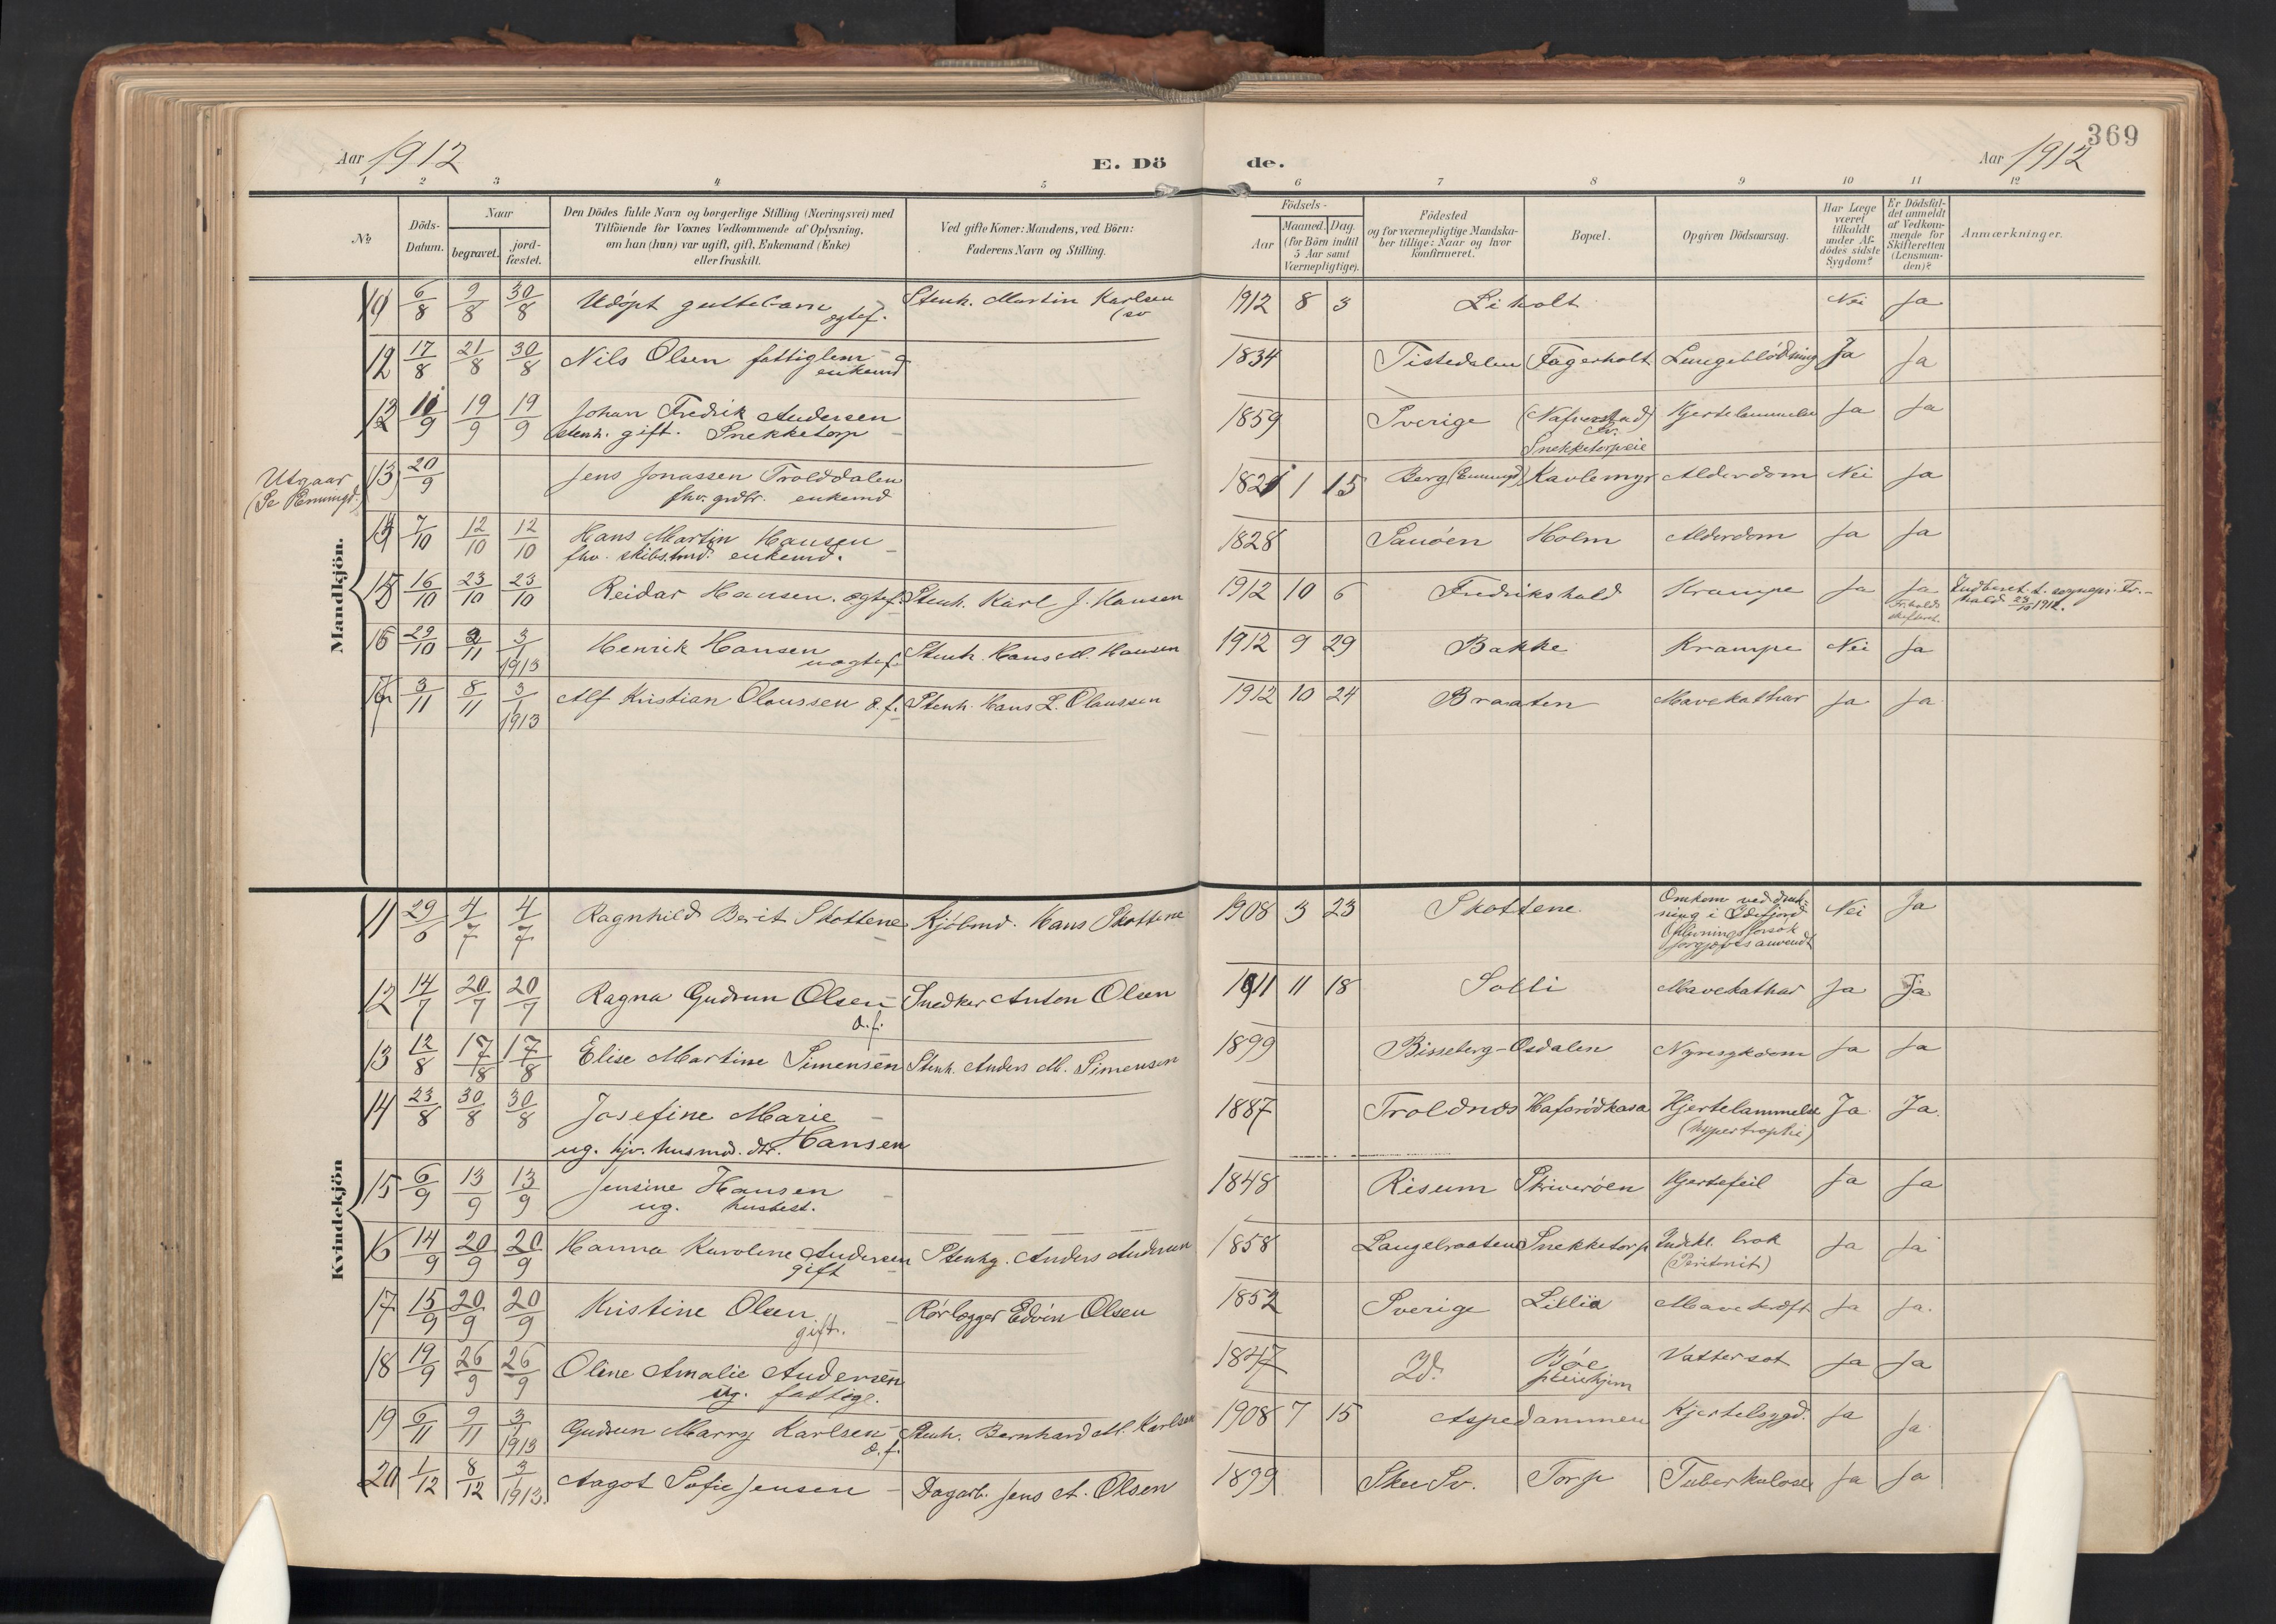 369
Aar 1912
E. Dö
de.
Aar 1912
1 2 3 4 5 6 7 8 9 10 11 12
No
Döds-
Datum.
Naar
begravet.
jord-
fæstet.
Den Dödes fulde Navn og borgerlige Stilling (Næringsvei) med
Tilföiende for Voxnes Vedkommende af Oplysning,
om han (hun) var ugift, gift, Enkemand (Enke)
eller fraskilt.
Ved gifte Koner: Mandens, ved Börn:
Faderens Navn og Stilling.
Födsels-
Aar
Maaned. Dag.
(for Börn indtil
5 Aar samt
Værnepligtige).
Födested
og for værnepligtige Mandska-
ber tillige: Naar og hvor
konfirmeret.
Bopæl.
Opgiven Dödsaarsag.
Har Læge
været
tilkaldt
under Af-
dödes sidste
Sygdom?
Er Dödsfal-
det anmeldt
af Vedkom-
mende for
Skifteretten
(Lensman-
den)?
Anmærkninger.
Mandkjön.
6/8 9/8 30/8 Udöpt guttebarn Stenh. Martin Karlsen 1912 8 3 Liholt Nei Ja
ægtef.
12 17/8 21/8 30/8 Nils Olsen fattiglem 1834 Tistedalen Fagerholt Lungeblödning Ja Ja
enkemd
19/9 19/9 Johan Fredrik Andersen 1859 Sverige (Nafverstad) Hjertelammelse Ja Ja
stenh. gift. Snekketorp
Snekketorpeie
Utgaar
13 20/9 Jens Jonassen Trolddalen 1 15 Berg Kavlemyr Alderdom Nei Ja
fhv. grdbr. enkemd
7/10 12/10 12/10 Hans Martin Hansen 1828 Sanöen Holm Alderdom Ja Ja
fhv. skibstmd. enkemd.
15 16/10 23/10 23/10 Reidar Hansen. ægtef. Stenh. Karl J. Hansen 1912 10 6 Fredrikshald Krampe Ja Ja Indberet. t. sognepr. Fr.-
hald 23/10 1912.
Fr.halds
skifteret.
16 29/10 2/11 3/1 1913 Henrik Hansen Stenh. Hans M. Hansen 1912 9 29 Bakke Krampe Nei Ja
uægtef.
17 3/11 8/11 3/1 1913 Alf Kristian Olaussen æ.f. Stenh. Hans L. Olaussen 1912 10 24 Braaten Mavekathar Ja Ja
Kvindekjön
11 29/6 4/7 4/7 Ragnhild Berit Skottene Kjöbmd. Hans Skottene 1908 3 23 Skottene Omkom ved druk- Nei Ja
ning i Idefjord
Oplivningsforsök
forgjæves anvendt
12 14/7 20/7 20/7 Ragna Gudrun Olsen Snedker Anton Olsen 1911 11 18 Solli Mavekathar Ja Ja
æ.f.
13 12/8 17/8 17/8 Elise Martine Simensen Stenh. Anders M. Simensen 1899 Bisseberg-Osdalen Nyresykdom Ja Ja
14 23/8 30/8 30/8 Josefine Marie 1887 Troldnæs Hafsrödkasa Hjertelammelse Ja Ja.
ug. hjv. husmd. dtr. Hansen (hypertrophi)
15 6/9 13/9 13/9 Jensine Hansen 1848 Risum Skriveröen Hjertefeil Ja Ja
ug. husbest.
16 14/9 20/9 20/9 Hanna Karoline Andersen Stenhg. Anders Andersen 1858 Langebraaten Snekketorp Indekl. brok Ja Ja
gift (Peritonit)
17 15/9 20/9 20/9 Kristine Olsen Rörlægger Edvin Olsen 1852 Sverige Lillia Mavekræft Ja Ja.
gift.
18 19/9 26/9 26/9 Oline Amalie Andersen 1847 Id. Böe Vattersot Ja Ja
ug. fattigl. pleiehjem
19 6/11 9/11 3/1 1913 Gudrun Marry Karlsen Stenh. Bernhard M. Karlsen 1908 7 15 Aspedammen Kjertelsygd. Ja Ja
æ.f.
20 1/12 8/12 3/1 1913. Aagot Sofie Jensen Dagarb. Jens A. Olsen 1899 Skee Sv. Torp Tuberkulose Ja Ja